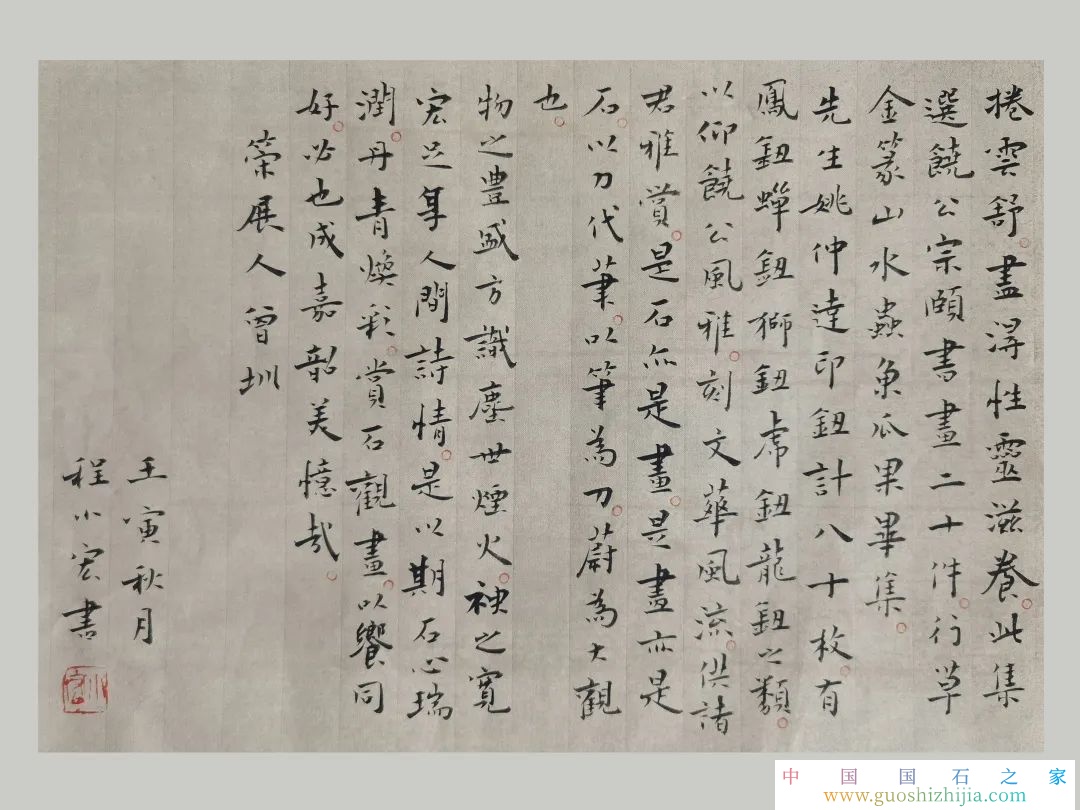 捲雲舒盡淂性靈滋養此集
選饒公宗頤書畫二十件行草
金篆山水蟲魚瓜果畢集
先生姚仲達印鈕計八十枚有
鳳鈕蟬鈕獅鈕虎鈕龍鈕之類
以仰饒公風雅刻文華風流供諸
君雅賞是石亦是畫是畫亦是
石以刀代筆以筆為刀蔚為大觀
也
物之豊盛方識塵世煙火神之寬
宏足耳人間詩情是以期石心瑞
潤丹青煥彩賞石觀畫以饗同
好必也成嘉韶美憶哉
榮展人曾圳
壬寅秋月
程小宏書
中国国石之家
www.guoshizhijia.com